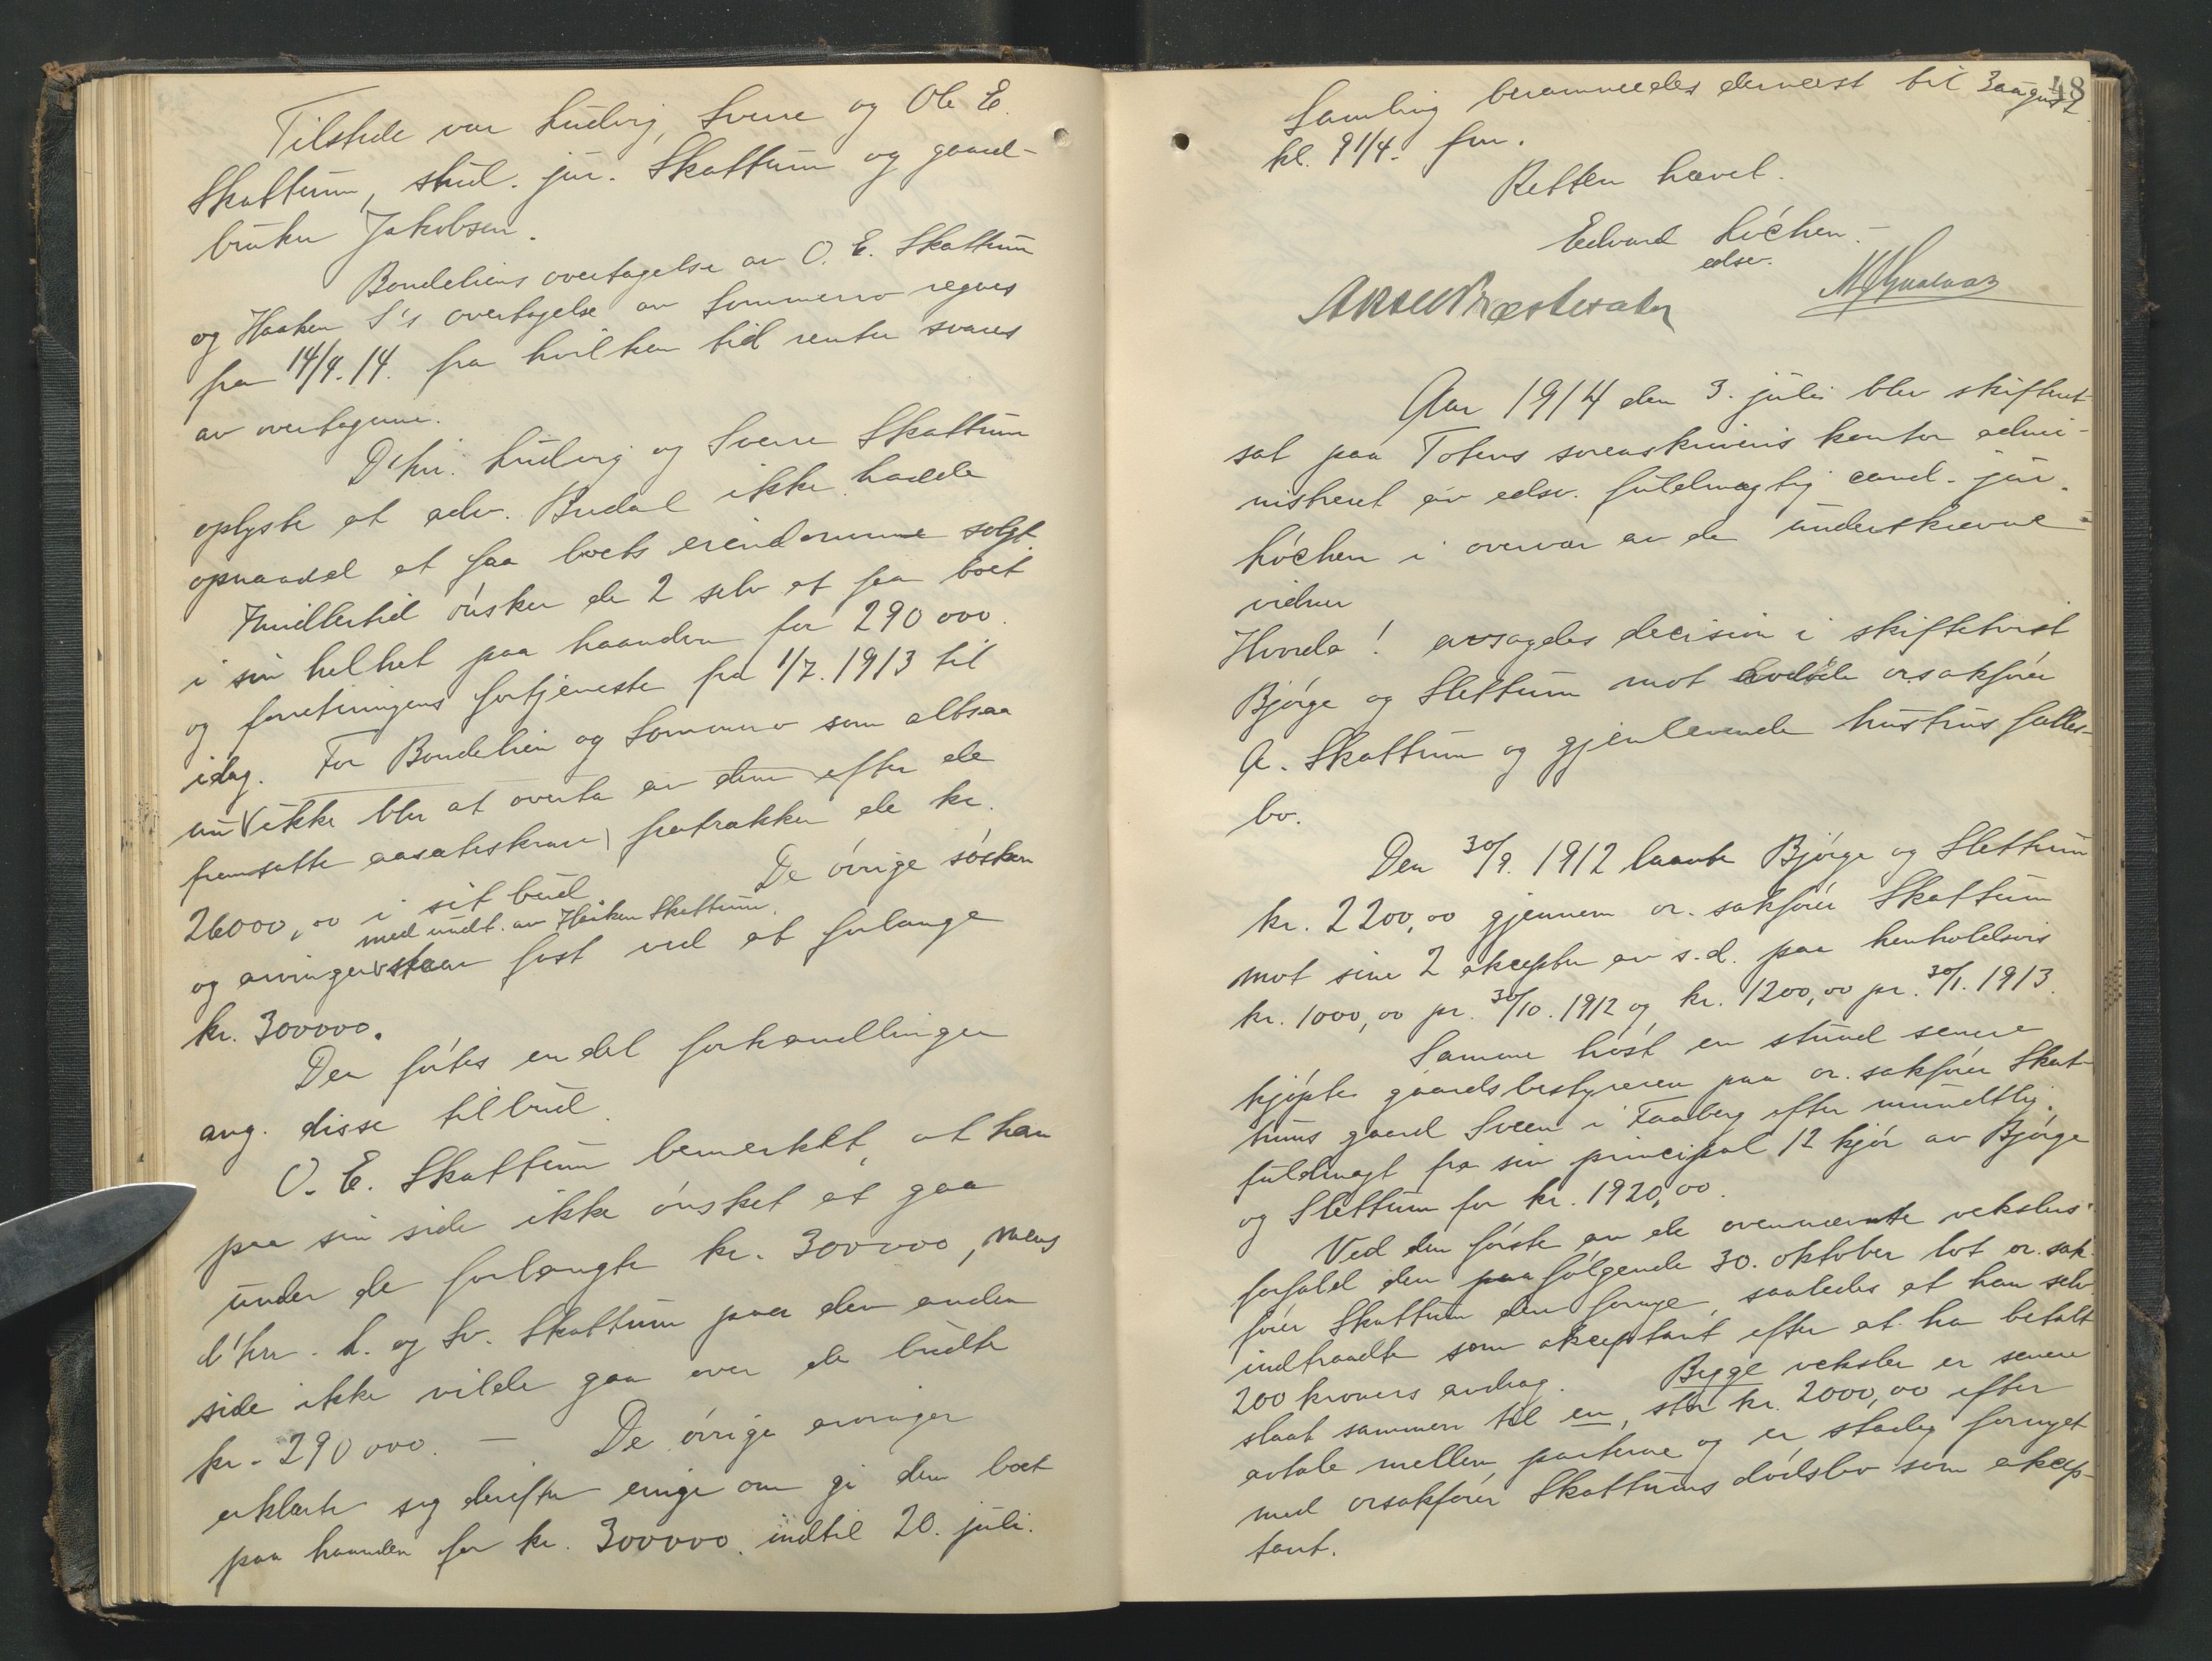 Tilstede var Ludvig, Sverre og Ole E.
Skattum, stud. jur. Skattum og gaard-
bruker Jakobsen.
Bondeliens overtagelse av O. E. Skattum
og Haaken S's overtagelse av Sommerro regnes
fra 14/4. 14. fra hvilken tid renter svares
av overtagerne.
D'hrr. Ludvig og Sverre Skattum
oplyste at adv. Budal ikke hadde
opnaadd at faa boets eiendomme solgt.
Imidlertid ønsker de 2 selv at faa boet
i sin helhet paa haanden for 290 000.
og forretningens fortjeneste fra 1/7. 1913 til
idag. For Bondelien og Sommerro som altsaa
nu ikke blir at overta av dem efter de
fremsatte aasæteskrav fratrækker de kr.
26000,00 i sit bud. De øvrige søsken
med undt. av Haaken Skattum
og arvinger staar fast ved at forlange
kr. 300000.
Der førtes en del forhandlinger
ang. disse tilbud.
O. E. Skattum bemerket, at han
paa sin side ikke ønsket at gaa
under de forlangte kr. 300000, mens
d'hrr. L. og Sv. Skattum paa den anden
side ikke vilde gaa over de budte
kr. 290 000. — De øvrige arvinger
erklærte sig derefter enige om gi dem boet
paa haanden for kr. 300000. indtil 20. juli.
48
Samling berammedes dernæst til 3 august
kl. 9 1/4. fm.
Retten hævet.
Edvard Løchen.
edsv.
Aar 1914 den 3. juli blev skifteret
sat paa Totens sorenskriveris kontor admi-
nistreret av edsv. fuldmægtig cand. jur.
Løchen i overvær av de underskrevne
vidner
Hvorda! avsagdes decision i skiftetvist
Bjørge og Slettum mot avdøde orsakfører
A. Skattum og gjenlevende hustrus fælles-
bo.
Den 30/9. 1912 laante Bjørge og Slettum
kr. 2200,00 gjennem or. sakfører Skattum
mot sine 2 aksepter av s. d. paa henholdsvis
kr. 1000,00 pr. 30/10. 1912 og kr. 1200,00 pr. 30/1. 1913.
Samme høst en stund senere
kjøpte gaardsbestyreren paa or. sakfører Skat-
tums gaard Sveen i Faaberg efter mundtlig
fuldmagt fra sin principal 12 kjør av Bjørge
og Slettum for kr. 1920,00.
Ved den første av de ovennævnte vekslers
forfald den paafølgende 30. oktober lot or. sak-
fører Skattum den fornye, saaledes at han selv
indtraadte som akceptant efter at ha betalt
200 kroners avdrag. Begge veksler er senere
slaat sammen til en, stor kr. 2000,00 efter
avtale mellem parterne og er stadig fornyet
med orsakfører Skattums dødsbo som akcep-
tant.